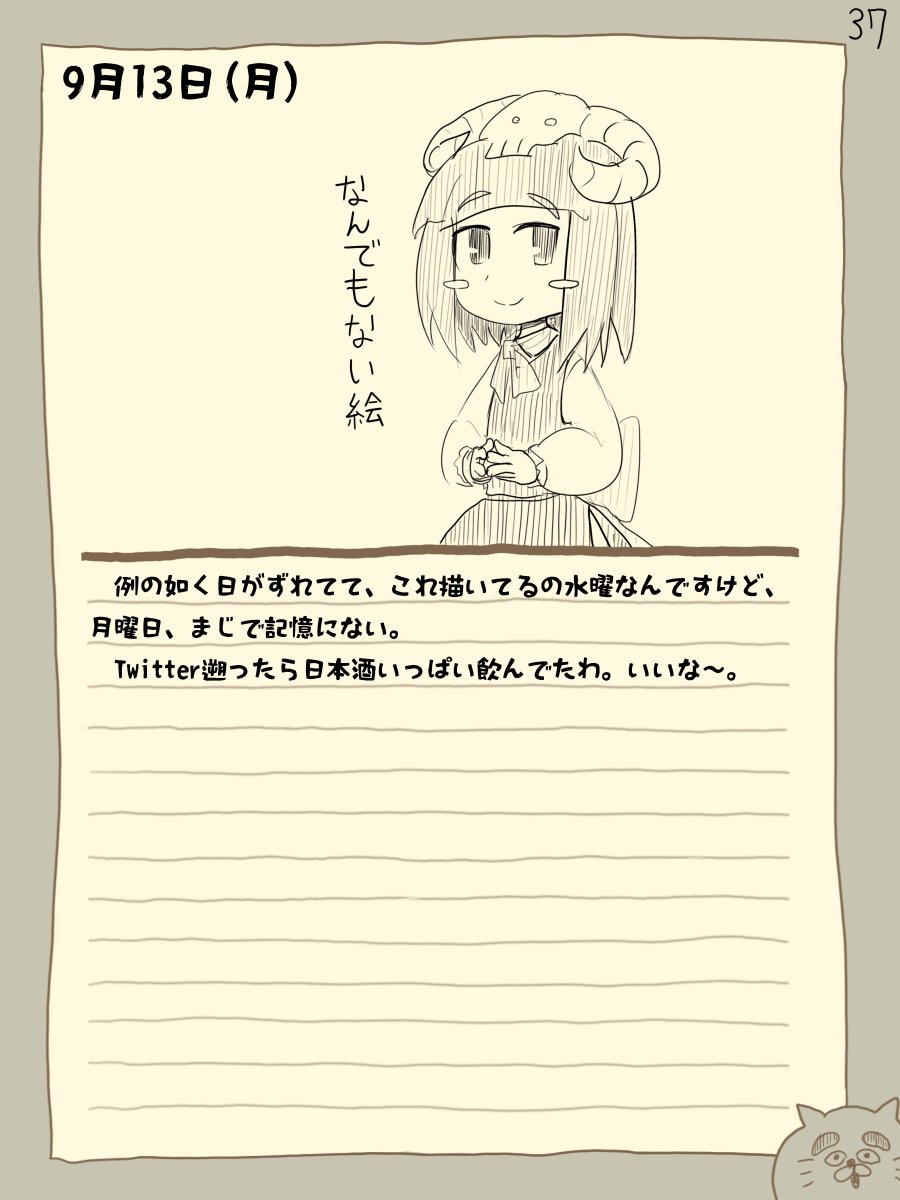 37
9月13日(月)
なんでもない絵
例の如く日がずれてて、これ描いてるの水曜なんですけど、
月曜日、まじで記憶にない。
Twitter遡ったら日本酒いっぱい飲んでたわ。いいな～。